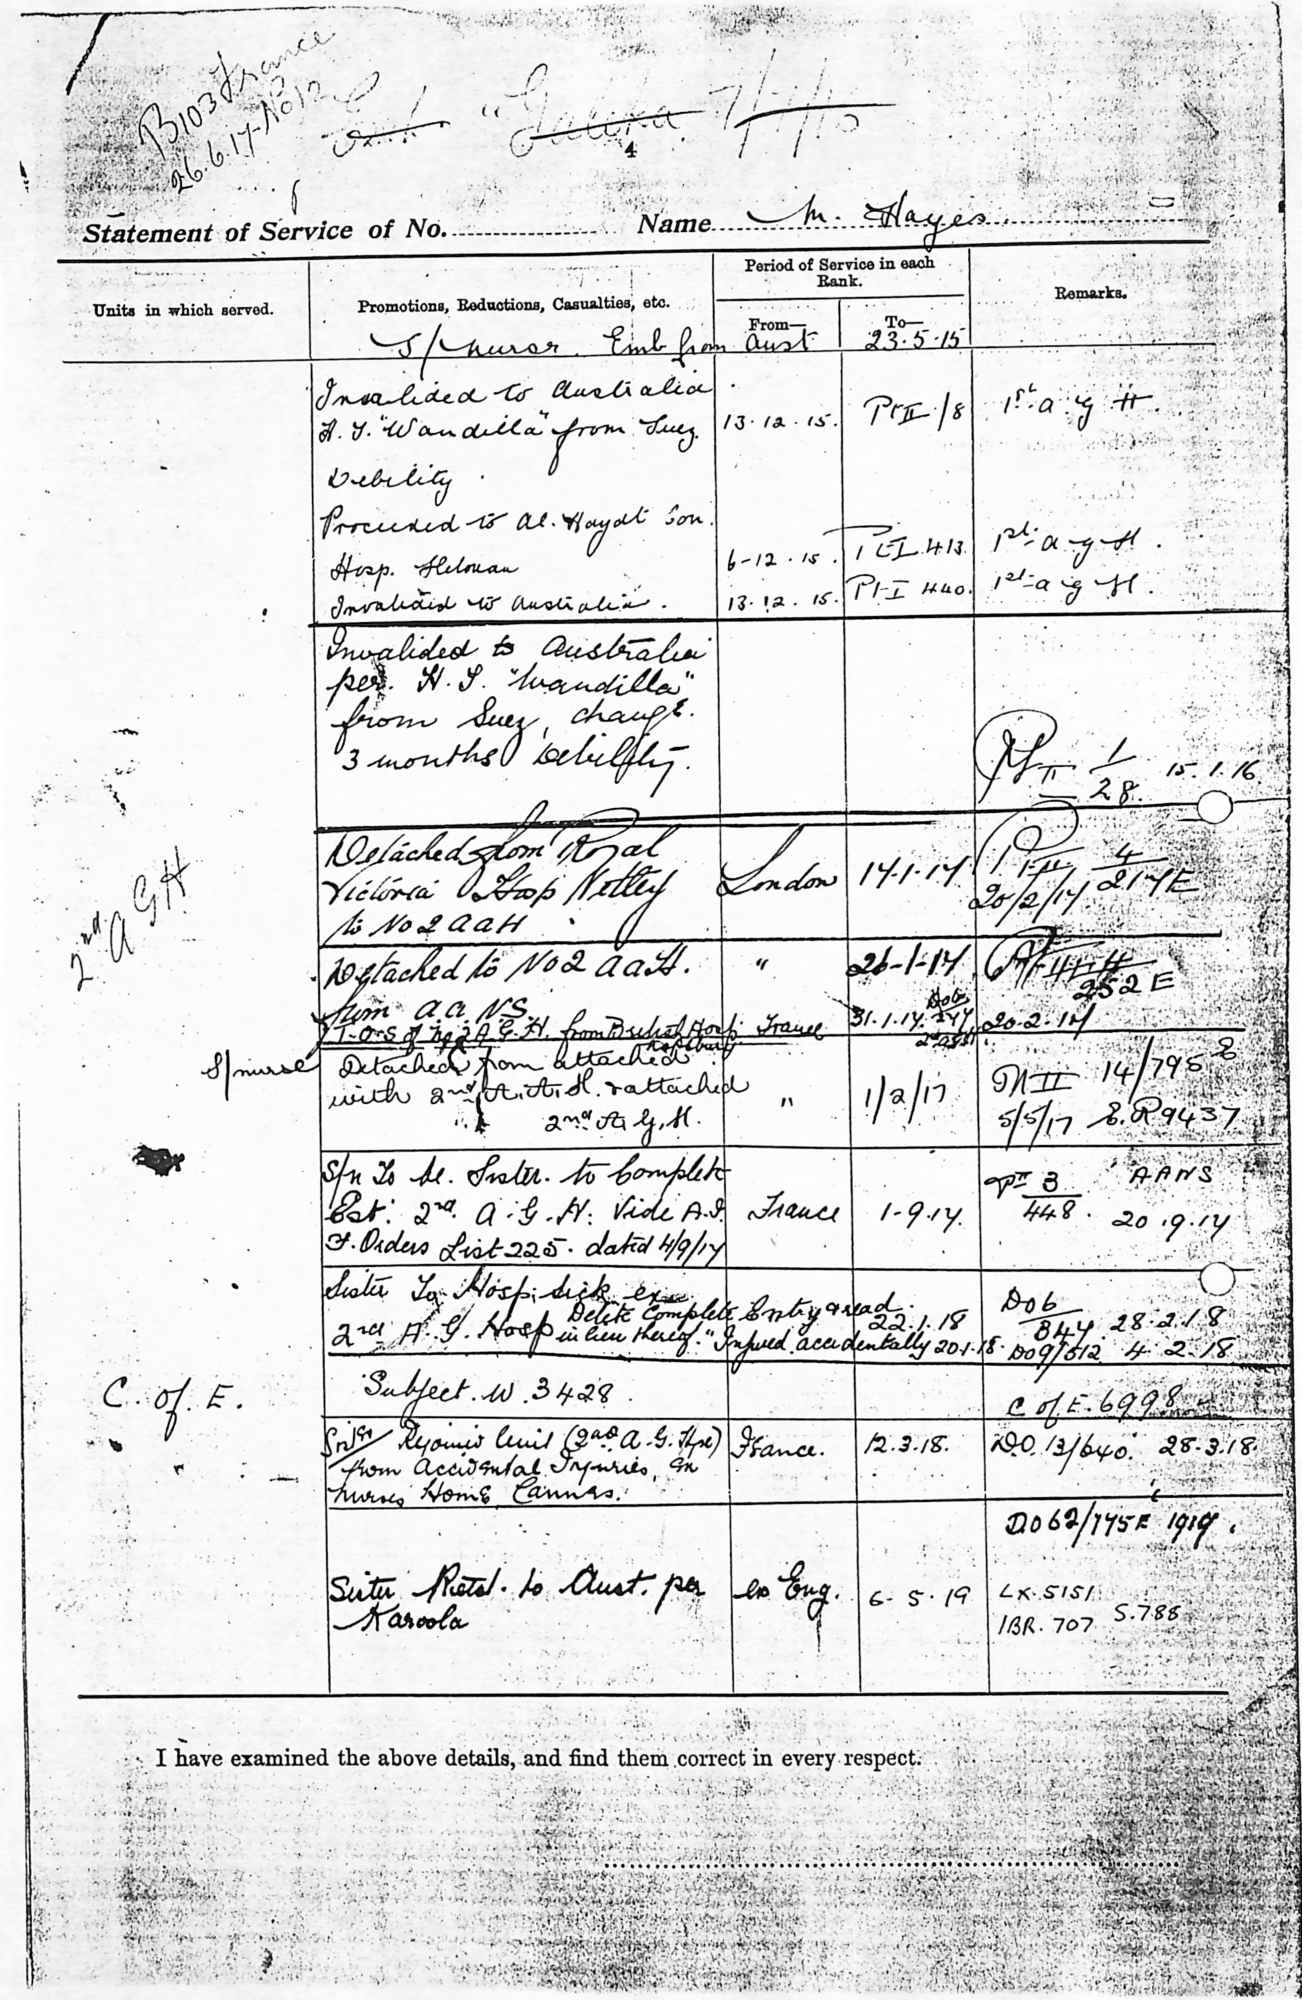 B103 France
26.6.17-No 12
"Galeka" 7/1/16
4
Statement of Service of No. Name M. Hayes
Units in which served. Promotions, Reductions, Casualties, etc. Period of Service in each Rank. Remarks.
From— To—
S/nurse. Emb from Aust 23.5.15
Invalided to Australia
H.S. "Wandilla" from Suez. 13.12.15. Pt II/8 1st A G H.
Debility.
Proceeded to Al. Hayat Con.
Hosp. Helouan 6-12.15. Pt I 413 1st A G H.
Invalided to Australia. 13.12.15. Pt I 440. 1st A G H.
Invalided to Australia
per. H.S. "Wandilla"
from Suez, change.
3 months Debility. Pt II 1/28. 15.1.16.
Detached from Royal
Victoria Hosp Netley London 17.1.17 Pt II 4/217E
to No 2 A A H 20/2/17
2nd A G H
Detached to No 2 A A H. " 26-1-17
from A.A.N.S. 252 E
T.O.S of No 2 A.G.H. from British Hosp France 31.1.17. 20.2.17
S/nurse Detached from attached
with 2nd A.A.H. & attached " 1/2/17 Pt II 14/795 E
2nd A.G.H. 5/5/17 E.R 9437
S/n To be. Sister. to Complete
Est. 2nd A.G.H. Vide A.I. France 1-9.17. Pt II 3/448. AANS
F. Orders List 225. dated 4/9/17 20.9.17
Sister To Hosp. sick ex
2nd A.G. Hosp 22.1.18 DO6/847 28.2.18
Delete Complete Entry & read
in lieu thereof. "Injured accidentally 20.1.18. DO9/512 4.2.18
C. of. E. Subject. W. 3428. C of E. 6998
Sister Rejoined Unit (2nd A.G. Hpl) France. 12.3.18. D.O. 13/640. 28.3.18.
from Accidental Injuries, ex
Nurses Home Cannes.
DO 62/775E 1919.
Sister Retd. to Aust. per ex Eng. 6.5.19 LX.5151
Karoola IBR.707 S.788
I have examined the above details, and find them correct in every respect.